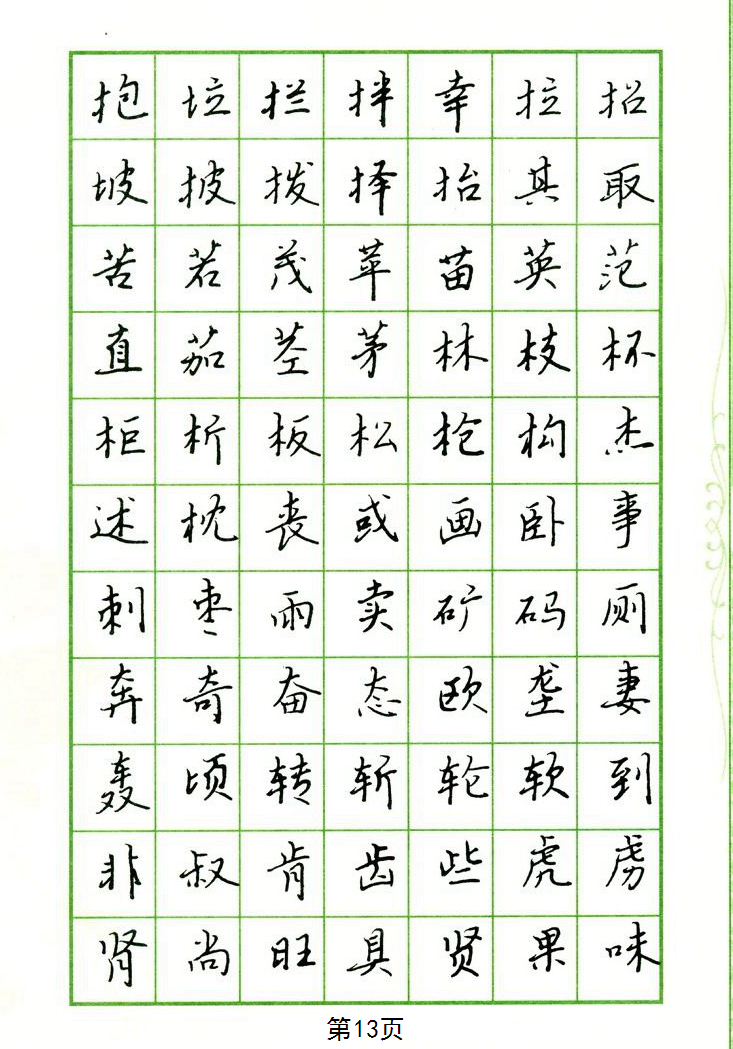 抱垃拦拌幸拉招
坡披拨择抬其取
苦若茂苹苗英范
直茄茎茅林枝杯
柜析板松枪构杰
述枕丧或画卧事
刺枣雨卖矿码厕
奔奇奋态欧垄妻
轰顷转斩轮软到
非叔肯齿些虎虏
肾尚旺具贤果味
第13页